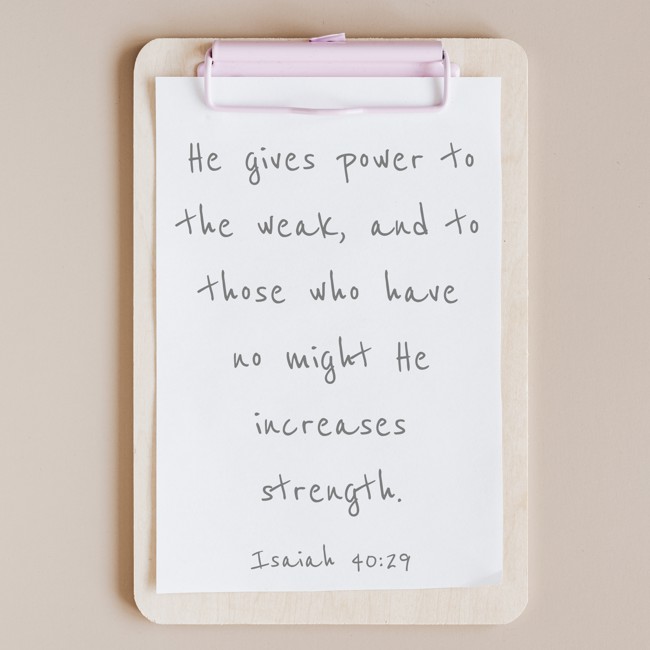 He gives power to
the weak, and to
those who have
no might He
increases
strength.
Isaiah 40:29